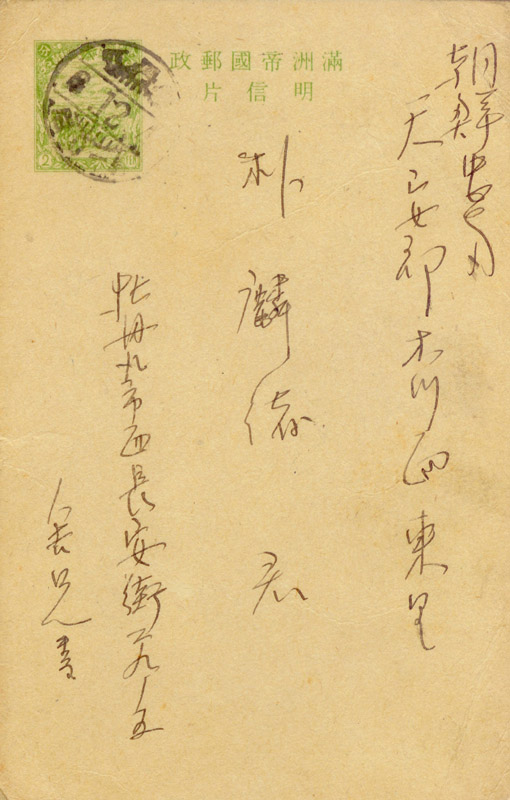 滿洲帝國郵政
明信片
朝鮮忠南
天安郡木川面東里
朴麟緒 君
牡丹江市西長安街
舍兄書
12
2
分